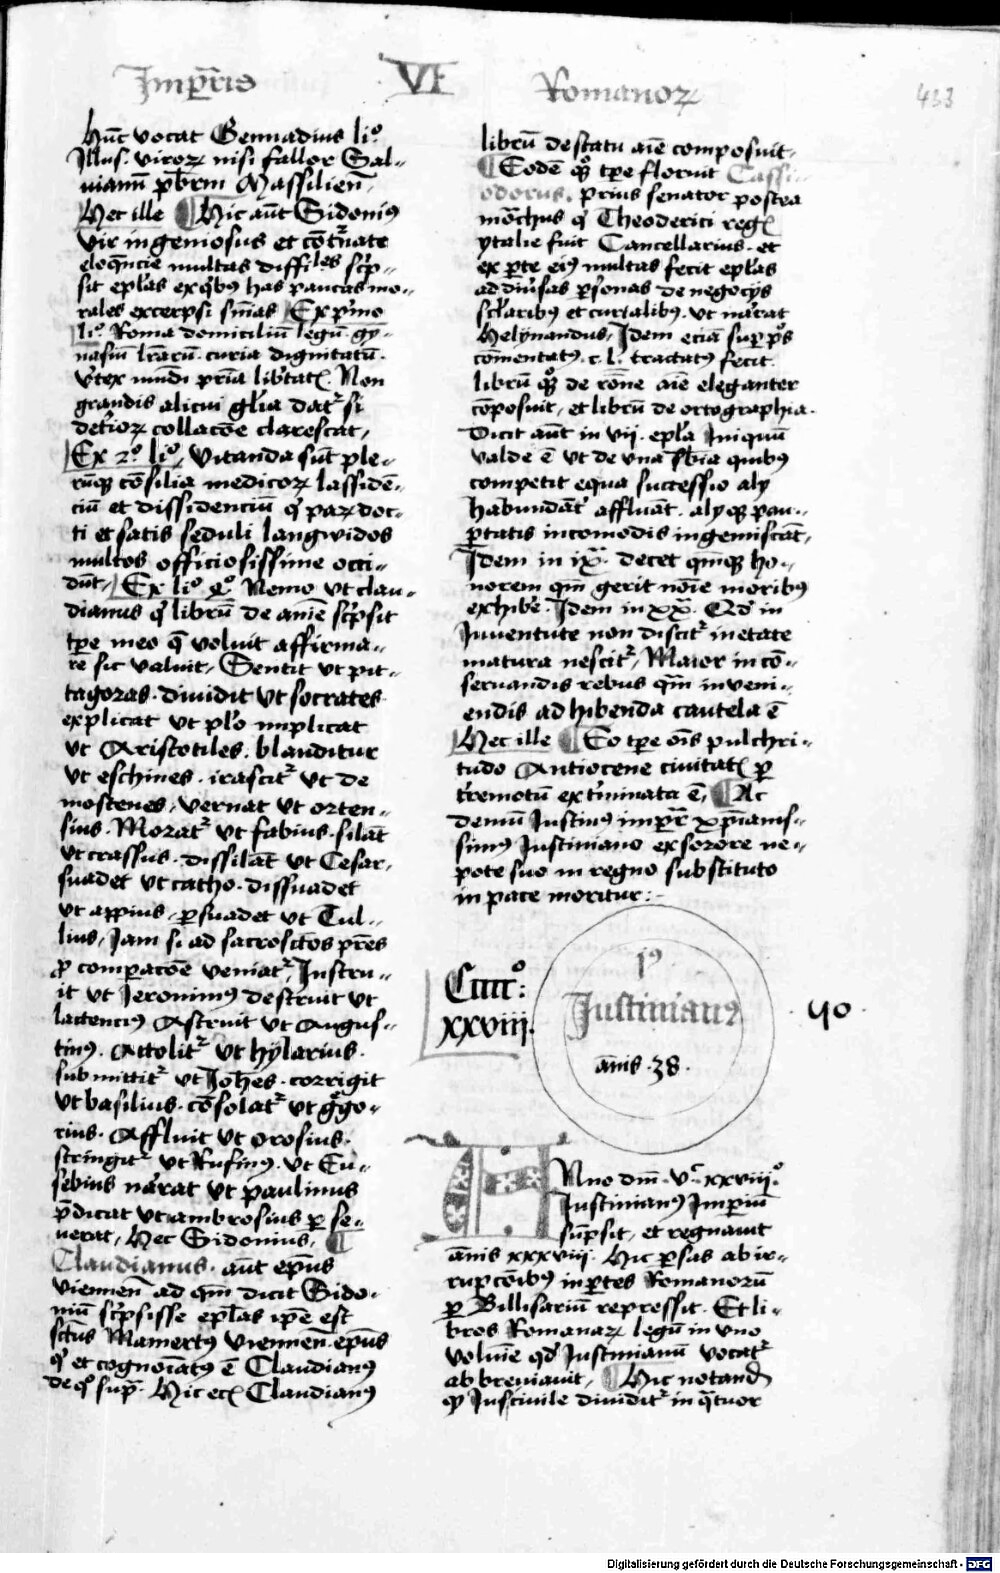 Imꝑris VI Romanoꝝ 433
hūc vocat Gennadius liº
Illus. viroꝝ nisi fallor Sal-
vianū pb̄rm Massilien̄.
Hec ille ¶ Hic aūt Sidoniꝰ
vir ingeniosus et
eloq̄ncie multas diffiles sc̄p-
sit ep̄las ex qͥbus has paucas mo-
rales excerpsi sn̄ias Ex pͥmo
liº. Roma domiciliū legū. gy-
nasiū lr̄arū. curia dignitatū.
v̄tex mūdi pr̄ia lib̄tatꝭ. Non
grandis alicui gl̄ia datᷣ si
det̄ioꝝ collacōe clarescat,
Ex 2º. liº, Vitanda sūt ple-
rūqꝫ cōsilia medicoꝝ lassidē-
ciū et dissidenciū qͥ paꝝ doc-
ti et satis seduli langwidos
multos officiosissime occi-
dūt, Ex liº qº. Nemo ut clau-
dianus qͥ librū de anīe sc̄psit
tꝑe meo qͥ voluit affirma-
re sic valuit, Sentit ut pit-
tagoras. dividit ut socrates
explicat ut plō implicat
ut Aristotiles. blanditur
ut eschines. irascitᷣ ut de
mostenes, vernat ut orten-
sius. Moratᷣ ut fabius. silāt
ut crassus. dissilāt ut Cesar.
suadet ut catho. dissuadet
ut appius, ꝑsuadet ut Tul-
lius, Iam si ad sacrosc̄tos pr̄es
ꝓ comparacōe veniatᷣ, Instru-
it ut Ieronimꝰ destruit ut
lactenciꝰ Astruit ut Augus-
tinꝰ. Attolitᷣ ut hylarius.
submittitᷣ ut Ioh̄es. corrigit
ut basilius. cōsolatᷣ ut gͤgo-
rius. Affluit ut orosius.
stringitᷣ ut Rufinꝰ. ut Eu-
sebius nārat ut paulinus
p̄dicat ut ambrosius ꝑse-
verat, Hec Sidonius, ¶
Claudianus. aūt ep̄us
viennen̄ ad qm̄ dicit Sido-
niū sc̄psisse ep̄las ip̄e est
sc̄tus Mamertꝰ viennen. ep̄us
qͥ et cognoīatꝰ ē Claudianꝰ
de qº supᷓ. Hic ecꝭ Claudianꝰ
librū de statu aīe composuit.
¶ Eodē qꝫ tꝑe floruit Cassi-
odorus. prius senator postea
mōchus qͥ Theoderici regꝭ
ytalie fuit Cancellarius. et
ex ꝑte eiꝰ multas fecit ep̄las
ad div̄sas ꝑsonas de negocijs
sc̄laribꝰ et curialibꝰ. ut nārat
Helynandus, Idem eciā suꝑ pͦs
cōmentatꝰ. c.l. tractatꝰ fecit.
librū qꝫ de rōne aīe eleganter
cōposuit, et librū de ortographia.
Dicit aūt in vij. ep̄la Iniquū
valde ē ut de una sb̄ia quibꝰ
competit equa successio alij
habundāt̄ affluāt. alijqꝫ pau-
ꝑtatis incomodis ingemiscāt,
Idem in ix. decet qmqꝫ ho-
norem qm̄ gerit nōie moribꝰ
exhib̄e. Idem in xx. Qd̄ in
Iuventute non discitᷣ in etate
matura nescitᷣ, Maior in cō-
servandis rebus qm̄ inveni-
endis adhibenda cautela ē
Hec ille ¶ Eo tꝑe oīs pulchri-
tudo Antiocene civitatꝭ ꝑ
t̄remotū ext̄minata ē, ¶ Ac
demū Iustinꝰ imꝑr xp̄ianis-
simꝰ Iustiniano ex sorore ne-
pote suo in regno substituto
in pace moritur:-
Cīīīīº:
xxviii.
Iꝰ
Iustinianꝰ
ānis .38.
.40.
ANno dn̄i .vͨ. xxviiiº.
Iustinianꝰ Imperiū
sūpsit, et regnavit
ānis xxxviii. Hic ꝑsas ab ir-
rupcōibꝰ in ꝑtes Romanorū
ꝑ Billisariū repressit. Et li-
bros Romanaꝝ legū in uno
volumīe qd̄ Iustinianū vocatᷣ
abbreviavit, ¶ Hic notand̄
ꝙ Ius civile dividitᷣ in qᷓtuor
Digitalisierung gefördert durch die Deutsche Forschungsgemeinschaft - DFG